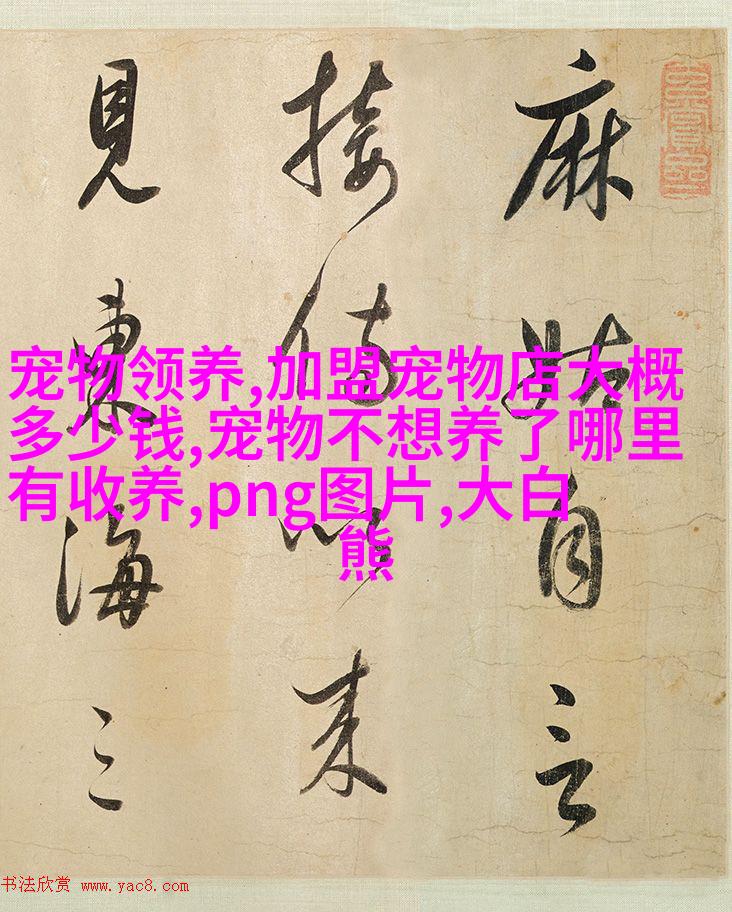 麻姑自言
接侍以来
見東海三
宠物领养,加盟宠物店大概
多少钱,宠物不想养了哪里
有收养,png图片,大白
熊
书法欣赏 www.yac8.com